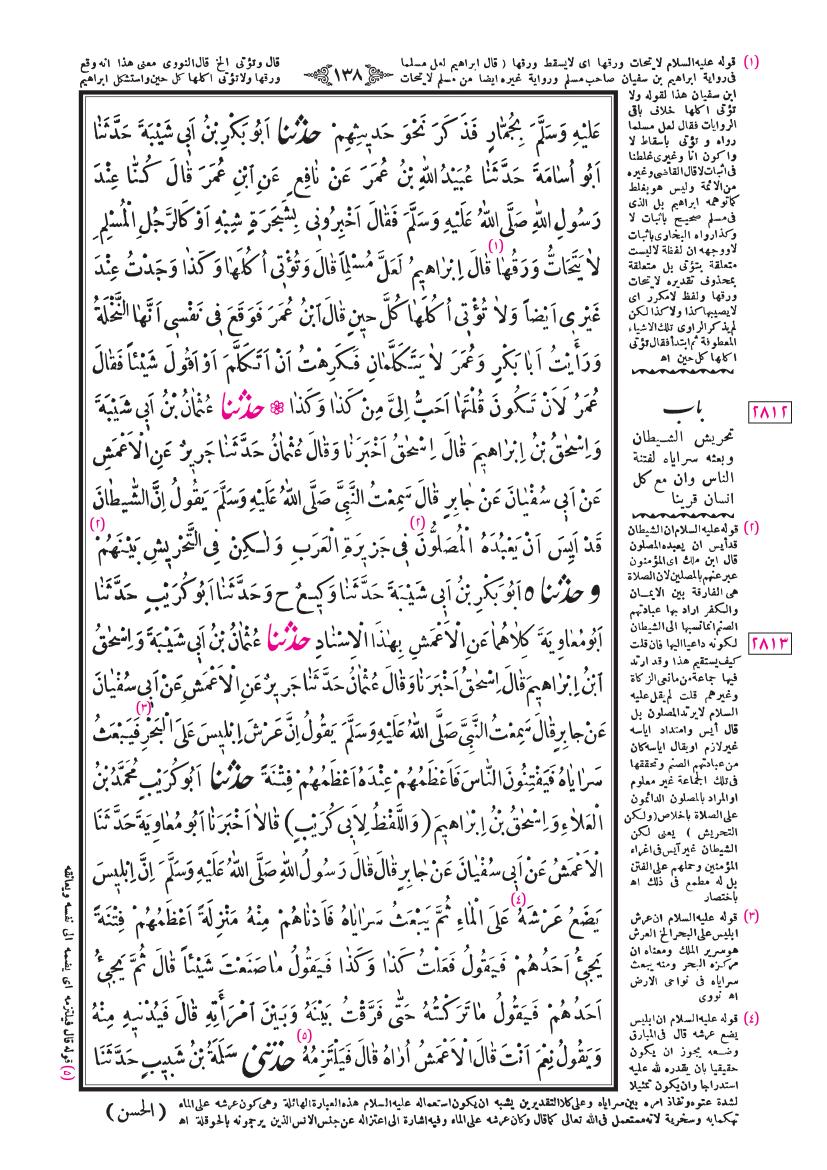 (١) قوله عليه السلام لا يتحات ورقها اى لايسقط ورقها ( قال ابراهيم لعل مسلما
فى رواية ابراهيم بن سفيان صاحب مسلم ورواية غيره ايضا من مسلم لايتحات
﴿١٣٨﴾
قال وتؤتى الخ قال النووى معنى هذا انه وقع
ورقها ولاتؤتى اكلها كل حين واستشكل ابراهيم
ابن سفيان هذا لقوله ولا
تؤتى اكلها خلاف باقى
الروايات فقال لعل مسلما
رواه و تؤتى باسقاط لا
واكون انا وغيرى غلطنا
فى اثبات لا قال القاضى وغيره
من الائمة وليس هو بغلط
كما توهمه ابراهيم بل الذى
فى مسلم صحيح باثبات لا
وكذا رواه البخارى باثبات
لا ووجهه ان لفظة لا ليست
متعلقة بتؤتى بل متعلقة
بمحذوف تقديره لا يتحات
ورقها ولفظ لا مكرر اى
لايصيبها كذا ولا كذا لكن
لم يذكر الراوى تلك الاشياء
المعطوفة ثم ابتدأ فقال تؤتى
اكلها كل حين اه
عَلَيْهِ وَسَلَّمَ بِجُمَّارٍ فَذَكَرَ نَحْوَ حَديثِهِمْ حدثنا اَبُو بَكْرِ بْنُ اَبى شَيْبَةَ حَدَّثَنَا
اَبُو اُسَامَةَ حَدَّثَنَا عُبَيْدُ اللهِ بْنُ عُمَرَ عَنْ نَافِعٍ عَنِ ابْنِ عُمَرَ قَالَ كُنَّا عِنْدَ
رَسُولِ اللهِ صَلَّى اللهُ عَلَيْهِ وَسَلَّمَ فَقَالَ اَخْبِرُونى بِشَجَرَةٍ شِبْهِ اَوْ كَالرَّجُلِ الْمُسْلِمِ
لَا يَتَحَاتُّ وَرَقُهَا (١) قَالَ اِبْرَاهيمُ لَعَلَّ مُسْلِماً قَالَ وَتُؤْتى اُكُلَهَا وَكَذَا وَجَدْتُ عِنْدَ
غَيْرى اَيْضاً وَلَا تُؤْتى اُكُلَهَا كُلَّ حينٍ قَالَ ابْنُ عُمَرَ فَوَقَعَ فى نَفْسى اَنَّهَا النَّخْلَةُ
وَرَأَيْتُ اَبَا بَكْرٍ وَعُمَرَ لَا يَتَكَلَّمَانِ فَكَرِهْتُ اَنْ اَتَكَلَّمَ اَوْ اَقُولَ شَيْئاً فَقَالَ
عُمَرُ لَاَنْ تَكُونَ قُلْتَهَا اَحَبُّ اِلَىَّ مِنْ كَذَا وَكَذَا ❁ حدثنا عُثْمَانُ بْنُ اَبى شَيْبَةَ
وَاِسْحٰقُ بْنُ اِبْرَاهيمَ قَالَ اِسْحٰقُ اَخْبَرَنَا وَقَالَ عُثْمَانُ حَدَّثَنَا جَريرٌ عَنِ الْاَعْمَشِ
عَنْ اَبى سُفْيَانَ عَنْ جَابِرٍ قَالَ سَمِعْتُ النَّبِىَّ صَلَّى اللهُ عَلَيْهِ وَسَلَّمَ يَقُولُ اِنَّ الشَّيْطَانَ
قَدْ اَيِسَ اَنْ يَعْبُدَهُ الْمُصَلُّونَ (٢) فى جَزيرَةِ الْعَرَبِ وَلٰكِنْ فِى التَّحْريشِ بَيْنَهُمْ (٢)
و حدثنا ه اَبُو بَكْرِ بْنُ اَبى شَيْبَةَ حَدَّثَنَا وَكيعٌ ح وَحَدَّثَنَا اَبُو كُرَيْبٍ حَدَّثَنَا
اَبُو مُعَاوِيَةَ كِلَاهُمَا عَنِ الْاَعْمَشِ بِهٰذَا الْاِسْنَادِ حدثنا عُثْمَانُ بْنُ اَبى شَيْبَةَ وَاِسْحٰقُ
ابْنُ اِبْرَاهيمَ قَالَ اِسْحٰقُ اَخْبَرَنَا وَقَالَ عُثْمَانُ حَدَّثَنَا جَريرٌ عَنِ الْاَعْمَشِ عَنْ اَبى سُفْيَانَ
عَنْ جَابِرٍ قَالَ سَمِعْتُ النَّبِىَّ صَلَّى اللهُ عَلَيْهِ وَسَلَّمَ يَقُولُ اِنَّ عَرْشَ اِبْليسَ عَلَى الْبَحْرِ (٣) فَيَبْعَثُ
سَرَايَاهُ فَيَفْتِنُونَ النَّاسَ فَاَعْظَمُهُمْ عِنْدَهُ اَعْظَمُهُمْ فِتْنَةً حدثنا اَبُو كُرَيْبٍ مُحَمَّدُ بْنُ
الْعَلَاءِ وَاِسْحٰقُ بْنُ اِبْرَاهيمَ (وَاللَّفْظُ لِاَبى كُرَيْبٍ) قَالَا اَخْبَرَنَا اَبُو مُعَاوِيَةَ حَدَّثَنَا
الْاَعْمَشُ عَنْ اَبى سُفْيَانَ عَنْ جَابِرٍ قَالَ قَالَ رَسُولُ اللهِ صَلَّى اللهُ عَلَيْهِ وَسَلَّمَ اِنَّ اِبْليسَ
يَضَعُ عَرْشَهُ (٤) عَلَى الْمَاءِ ثُمَّ يَبْعَثُ سَرَايَاهُ فَاَدْنَاهُمْ مِنْهُ مَنْزِلَةً اَعْظَمُهُمْ فِتْنَةً
يَجِئُ اَحَدُهُمْ فَيَقُولُ فَعَلْتُ كَذَا وَكَذَا فَيَقُولُ مَا صَنَعْتَ شَيْئاً قَالَ ثُمَّ يَجِئُ
اَحَدُهُمْ فَيَقُولُ مَا تَرَكْتُهُ حَتّٰى فَرَّقْتُ بَيْنَهُ وَبَيْنَ امْرَأَتِهِ قَالَ فَيُدْنيهِ مِنْهُ
وَيَقُولُ نِعْمَ اَنْتَ قَالَ الْاَعْمَشُ اُرَاهُ قَالَ فَيَلْتَزِمُهُ (٥) حدثنى سَلَمَةُ بْنُ شَبيبٍ حَدَّثَنَا
٢٨١٢
باب
تحريش الشيطان
وبعثه سراياه لفتنة
الناس وان مع كل
انسان قرينا
(٢) قوله عليه السلام ان الشيطان
قد أيس ان يعبده المصلون
قال ابن ملك اى المؤمنون
عبر عنهم بالمصلين لان الصلاة
هى الفارقة بين الايمان
والكفر اراد بها عبادتهم
الصنم انما نسبها الى الشيطان
لكونه داعيا اليها فان قلت
كيف يستقيم هذا وقد ارتد
فيها جماعة من مانعى الزكاة
وغيرهم قلت لم يقل عليه
السلام لا يرتد المصلون بل
قال أيس وامتداد اياسه
غير لازم او يقال اياسه كان
من عبادتهم الصنم وتحققها
فى تلك الجماعة غير معلوم
او المراد بالمصلون الدائمون
على الصلاة باخلاص (ولكن
التحريش ) يعنى لكن
الشيطان غير آيس فى اغراء
المؤمنين وحملهم على الفتن
بل له مطمع فى ذلك اه
باختصار
٢٨١٣
(٣) قوله عليه السلام ان عرش
ابليس على البحر الخ العرش
هو سرير الملك ومعناه ان
مركزه البحر ومنه يبعث
سراياه فى نواحى الارض
اه نووى
(٤) قوله عليه السلام ان ابليس
يضع عرشه قال فى المبارق
وضعه يجوز ان يكون
حقيقيا بان يقدره لله عليه
استدراجا وان يكون تمثيلا
لشدة عتوه ونفاذ امره بين سراياه وعلى كلا التقديرين يشبه ان يكون استعماله عليه السلام هذه العبارة الهائلة وهى كون عرشه على الماء
تهكما به وسخرية لانه مستعمل فى الله تعالى كما قال وكان عرشه على الماء وفيه اشارة الى اعتزاله عن جنس الانس الذين يرجمونه بالحوقلة اه
(الحسن)
(٥) قوله قال فيلتزمه اى يضمه الى نفسه ويعانقه